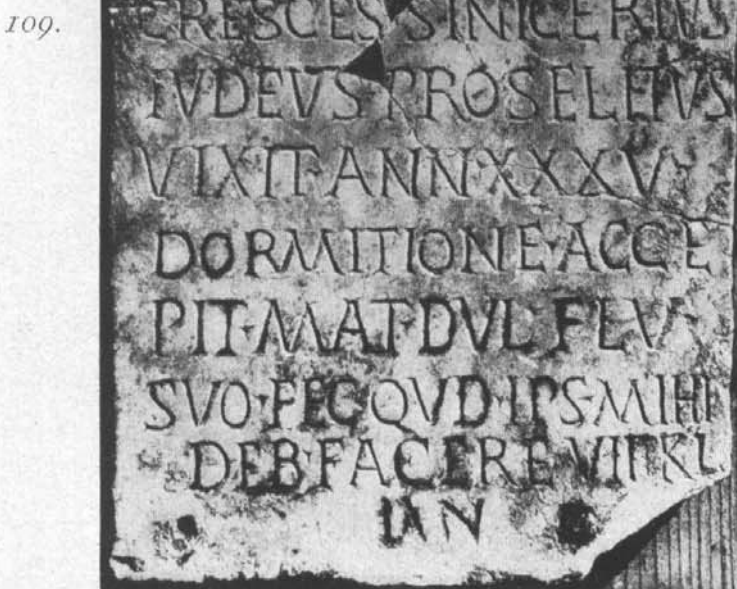 109.
CRESCES SINICERIVS
IVDEVS PROSELITVS
VIXIT·ANN·XXXV
DORMITIONE·ACCE
PIT·MAT·DVL·FLV
SVO·FEC·QVD·IPS·MIHI
DEB·FACERE VIII KL
IAN